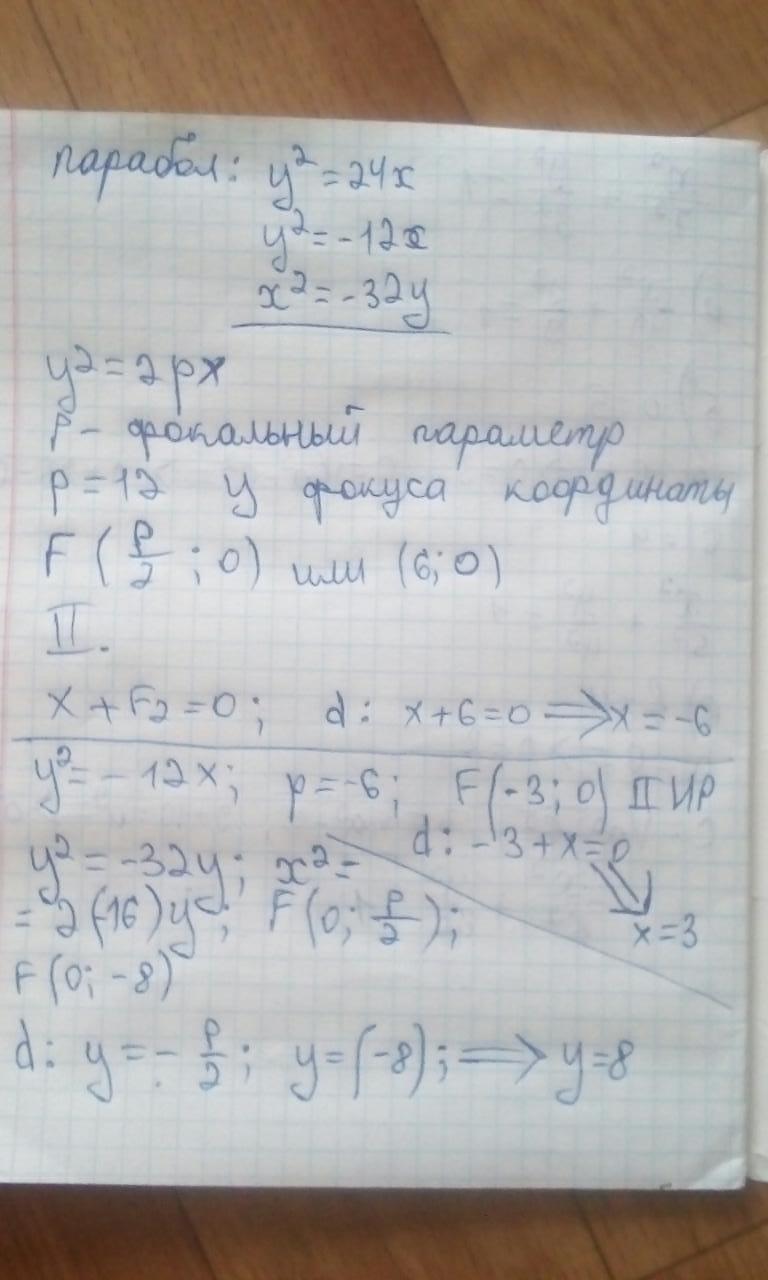 парабол: y² = 24x
y² = -12x
x² = -32y
y² = 2px
P - фокальный параметр
p = 12 У фокуса координаты
F (p/2 ; 0) или (6; 0)
II.
x + F₂ = 0; d: x + 6 = 0 ⟹ x = -6
y² = -12x; p = -6; F(-3; 0) II ИР
d: -3 + x = 0
x = 3
y² = -32y; x² =
= 2(-16)y; F(0; p/2);
F(0; -8)
d: y = - p/2; y = (-8); ⟹ y = 8